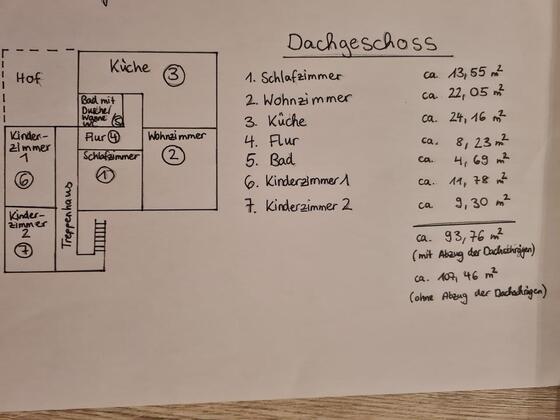 Dachgeschoss
Hof
Küche 3
Bad mit
Dusche/
Wanne
WC 5
Flur 4
Kinder-
zimmer
1
6
Schlafzimmer
1
Wohnzimmer
2
Kinder-
zimmer
2
7
Treppenhaus
1. Schlafzimmer ca. 13,55 m²
2. Wohnzimmer ca. 22,05 m²
3. Küche ca. 24,16 m²
4. Flur ca. 8,23 m²
5. Bad ca. 4,69 m²
6. Kinderzimmer 1 ca. 11,78 m²
7. Kinderzimmer 2 ca. 9,30 m²
ca. 93,76 m²
(mit Abzug der Dachschrägen)
ca. 107,46 m²
(ohne Abzug der Dachschrägen)